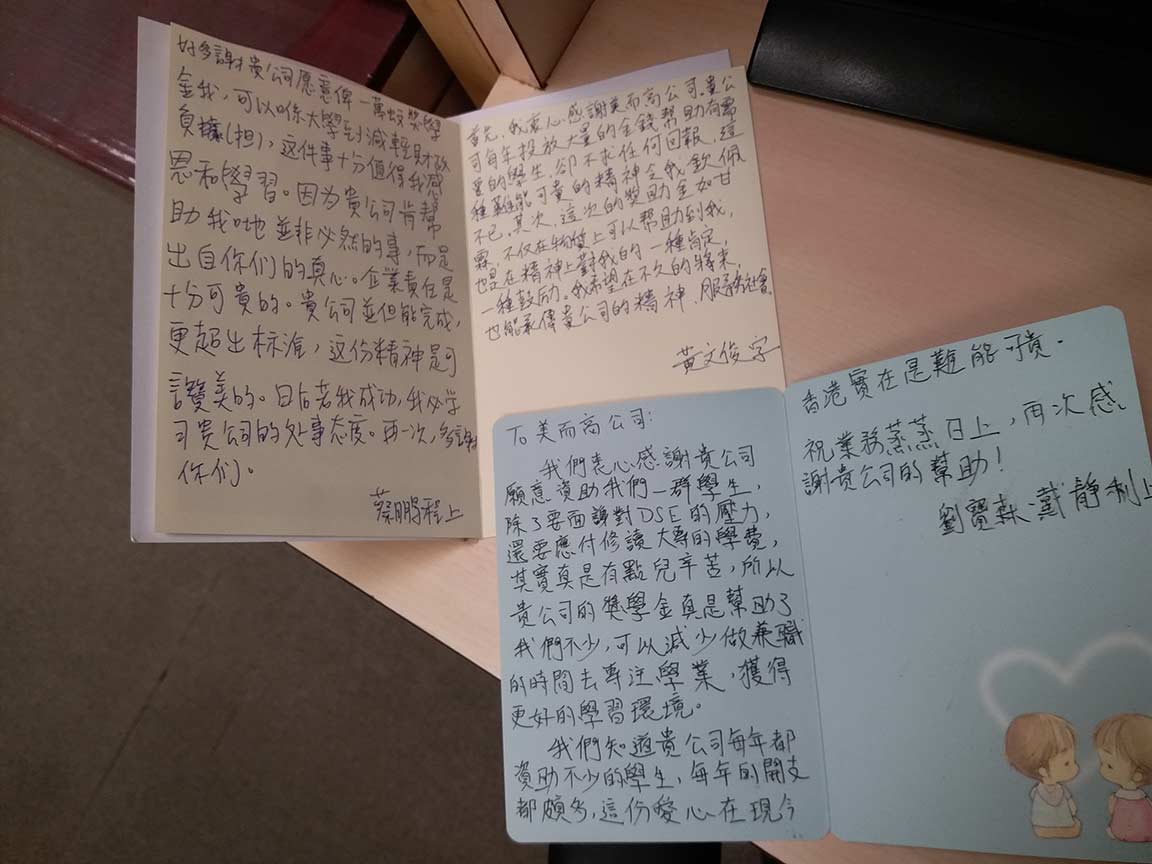 好多謝貴公司愿意俾一萬蚊奬學
金我，可以喺大學到減輕財政
負擔(担)，这件事十分值得我感
恩和學習。因为貴公司肯幫
助我哋並非必然的事，而是
出自你们的真心。企業責任是
十分可貴的。貴公司並但能完成，
更超出标准，这份精神是可
讚美的。日后若我成功，我必学
习贵公司的处事态度。再一次，多謝
你们。
蔡鵬程上
首先，我衷心感謝美而高公司。貴公
司每年投放大量的金錢帮助有需
要的學生，卻不求任何回報，這
種難能可貴的精神令我欽佩
不已，其次，這次的獎助金如甘
霖，不仅在物質上可以帮助到我，
也是在精神上對我的一種肯定，
一種鼓励。我希望在不久的將來，
也能承傳貴公司的精神，服務社會。
黃文俊字
To 美而高公司：
我們衷心感謝貴公司
願意資助我們一群學生，
除了要面對DSE的壓力，
還要應付修讀大專的學費，
其實真是有點兒辛苦，所以
貴公司的獎學金真是幫助了
我們不少，可以減少做兼職
的時間去專注學業，獲得
更好的學習環境。
我們知道貴公司每年都
資助不少的學生，每年的開支
都頗多，這份愛心在現今
香港實在是難能可貴。
祝業務蒸蒸日上，再次感
謝貴公司的幫助！
劉寶森、戴靜利上